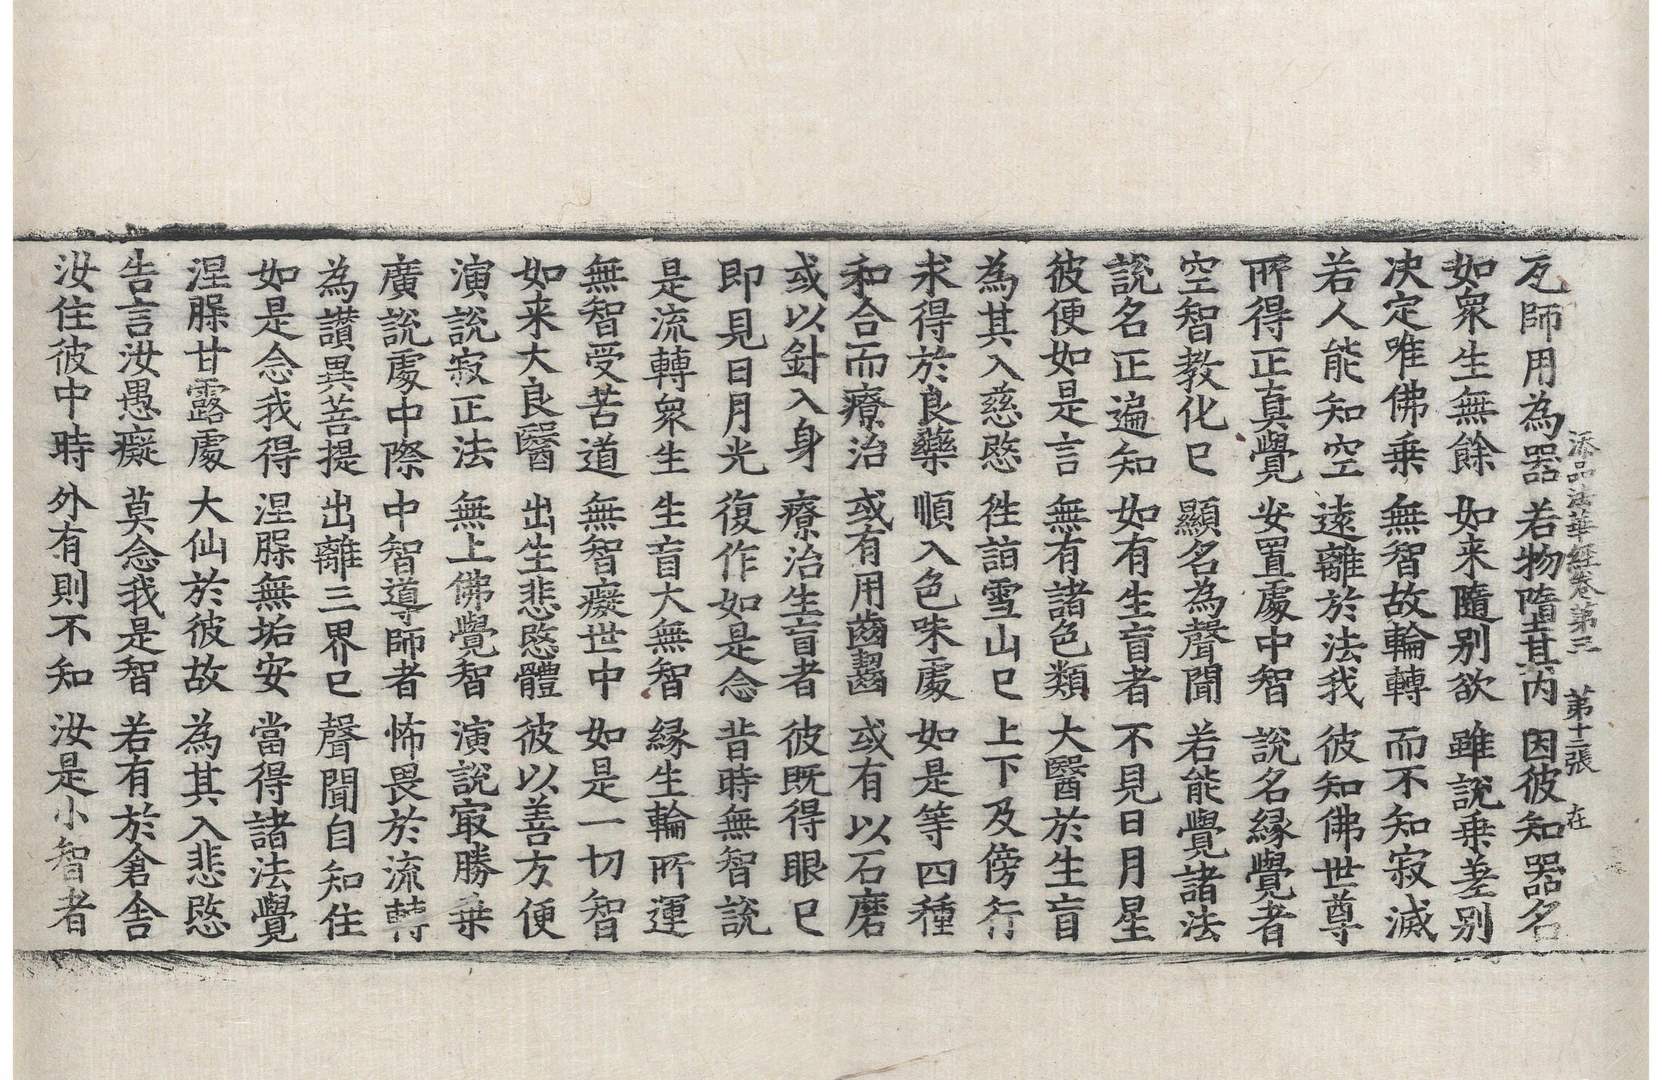 添品法華經卷第三 第十一張 在
瓦師用為器 若物墮其內 因彼知器名
如衆生無餘 如来隨别欲 雖說乗差别
决定唯佛乗 無智故輪轉 而不知寂滅
若人能知空 遠離於法我 彼知佛世尊
所得正真覺 安置處中智 說名縁覺者
空智教化巳 顯名為聲聞 若能覺諸法
說名正遍知 如有生盲者 不見日月星
彼便如是言 無有諸色類 大醫於生盲
為其入慈愍 徃詣雪山巳 上下及傍行
求得於良藥 順入色味處 如是等四種
和合而療治 或有用齒齧 或有以石磨
或以針入身 療治生盲者 彼既得眼巳
即見日月光 復作如是念 昔時無智說
是流轉衆生 生盲大無智 縁生輪所運
無智受苦道 無智癡世中 如是一切智
如来大良醫 出生悲愍體 彼以善方便
演說寂正法 無上佛覺智 演說㝡勝乗
廣說處中際 中智導師者 怖畏於流轉
為讃異菩提 出離三界巳 聲聞自知住
如是念我得 涅腺無垢安 當得諸法覺
涅腺甘露處 大仙於彼故 為其入悲愍
告言汝愚癡 莫念我是智 若有於倉舍
汝住彼中時 外有則不知 汝是小智者